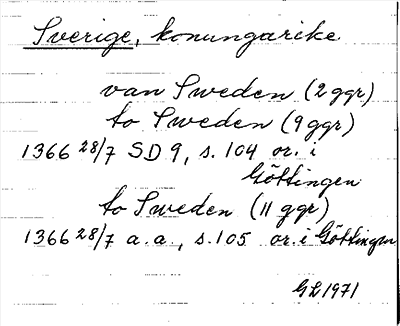 Sverige, konungarike
van Sweden (2 ggr)
to Sweden (9 ggr)
1366 28/7 SD 9, s. 104 or. i
Göttingen
to Sweden (11 ggr)
1366 28/7 a. a., s. 105 or. i Göttingen
GL 1971